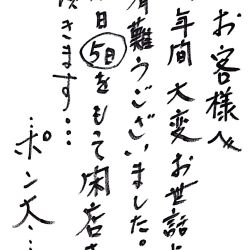 お客様へ
年間大変お世話に
有難うございました。
日5日をもって閉店さ
頂きます…
…ポン太…